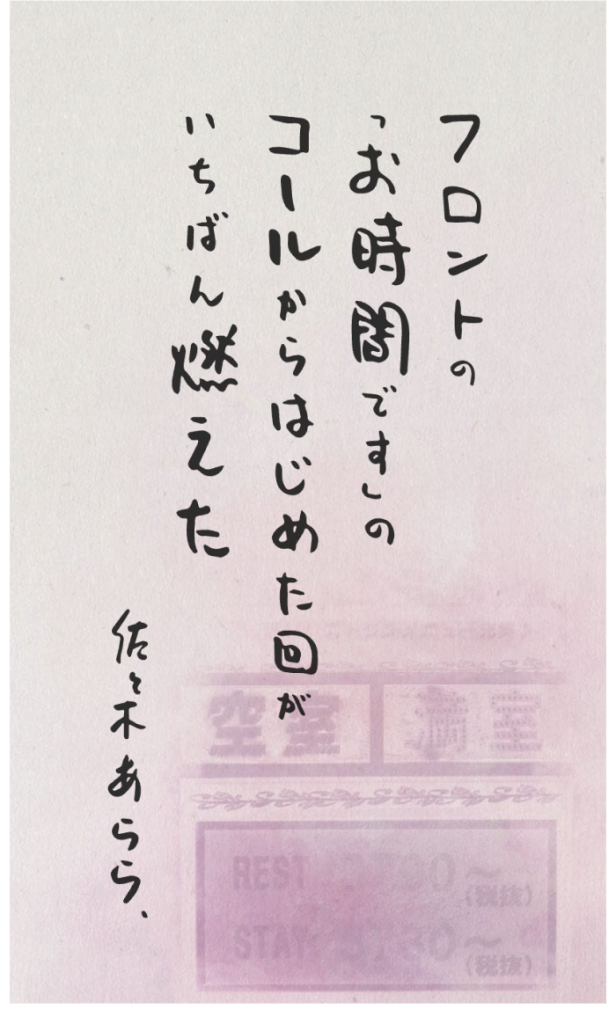 フロントの
「お時間です」の
コールからはじめた回が
いちばん燃えた
佐々木あらら、
空室 満室
REST
(税抜)
STAY
(税抜)